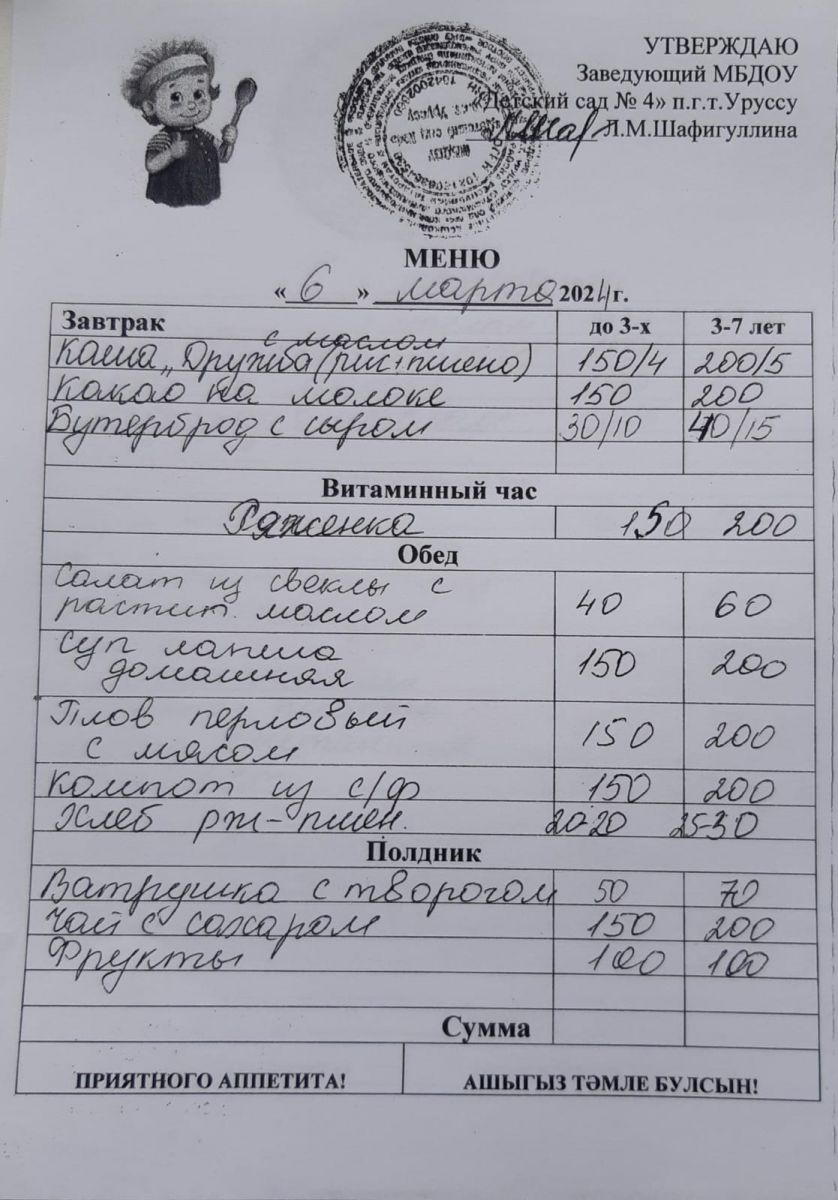 УТВЕРЖДАЮ
Заведующий МБДОУ
«Детский сад № 4» п.г.т.Уруссу
Л.М.Шафигуллина
МЕНЮ
« 6 » марта 2024 г.
Завтрак до 3-х 3-7 лет
с маслом
Каша „Дружба (рис+пшено) 150/4 200/5
Какао на молоке 150 200
Бутерброд с сыром 30/10 40/15
Витаминный час
Ряженка 150 200
Обед
Салат из свеклы с
растит. маслом 40 60
Суп лапша
домашняя 150 200
Плов перловый
с мясом 150 200
Компот из с/ф 150 200
Хлеб рж-пшен. 20-20 25-30
Полдник
Ватрушка с творогом 50 70
Чай с сахаром 150 200
Фрукты 100 100
Сумма
ПРИЯТНОГО АППЕТИТА! АШЫГЫЗ ТӘМЛЕ БУЛСЫН!